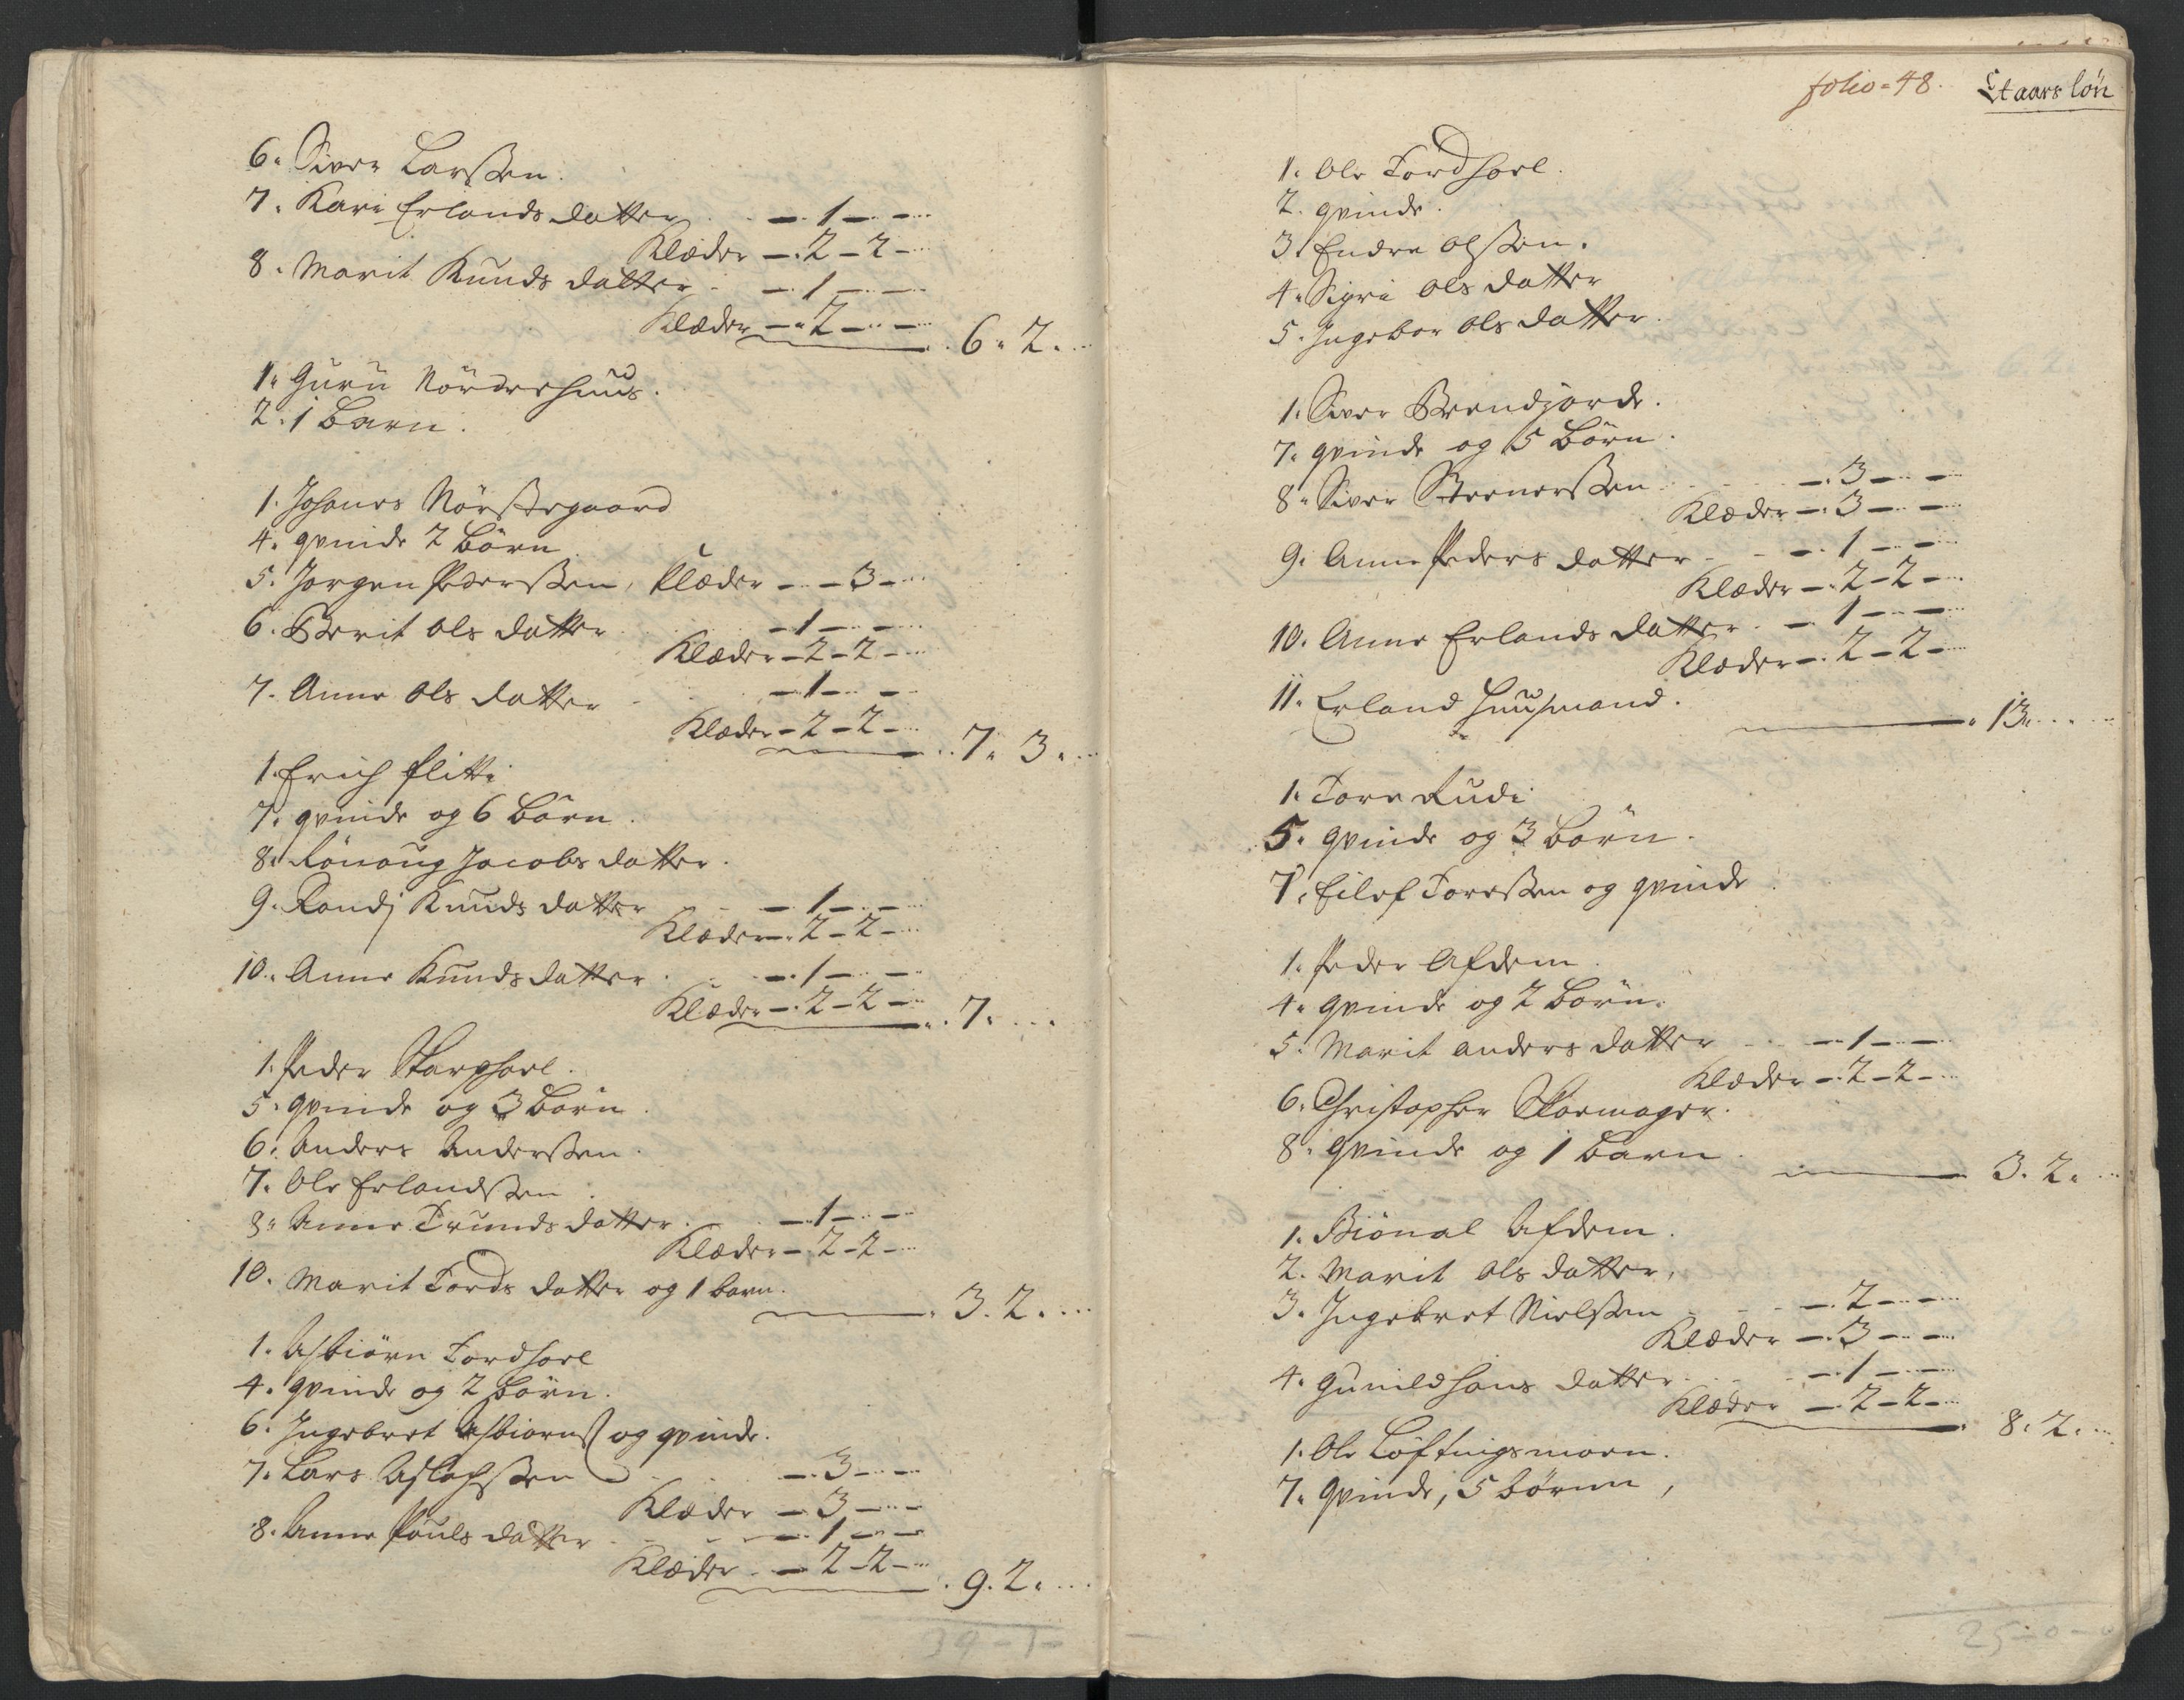 6. Siver Larssen.
7. Kari Erlands datter . . - 1 - -
Klæder - 2 - 2 -
8. Marit Knuds datter . - 1 - -
Klæder - 2 - - . 6. 2. ..
1. Guru Nørdrehuus.
2. 1 Barn.
1. Johanes Nørstegaard
4. qvinde 2 Børn
5. Jorgen Pederssen, Klæder - - 3 -
6. Berit Ols datter - 1 - -
Klæder - 2 - 2 -
7. Anne Ols datter - 1 - -
Klæder - 2 - 2 - .. 7. 3. ..
1. Erich Klitti
7. qvinde og 6 Børn.
8. Rønoug Jacobs datter.
9. Randj Knuds datter - 1 - -
Klæder - 2 - 2 -
10. Anne Knuds datter . - 1 - -
Klæder - 2 - 2 - .. 7. ...
1. Peder Skarphoel.
5. qvinde og 3 Børn.
6. Anders Anderssen.
7. Ole Erlandssen.
8. Anne Trunds datter. - 1 - -
Klæder - 2 - 2 -
10. Marit Tords datter og 1 barn.
. 3. 2. ...
1. Asbiørn Tordhoel
4. qvinde og 2 Børn.
6. Ingebret Asbiorns. og qvinde.
7. Lars Aslachssen - 3 - -
Klæder - 3 - -
8. Anne Pouls datter . - 1 - -
Klæder - 2 - 2 -
. 9. 2. ..
39 - 1 -
folio = 48.
Et aars løn
1. Ole Tordhoel.
2. qvinde.
3. Endre Olssen.
4. Sigri Ols datter
5. Ingebor Ols datter.
1. Siver Brendjorde.
7. qvinde og 5 Børn.
8. Siver Steenerssen - 3 - -
Klæder - 3 - -
9. Anne Peders datter - 1 - -
Klæder - 2 - 2 -
10. Anne Erlands datter. - 1 - -
Klæder - 2 - 2 -
11. Erland Huusmand.
. 13. ....
1. Tore Rudi
5. qvinde og 3 Børn.
7. Eilef Toressen og qvinde
1. Peder Afdem.
4. qvinde og 2 Børn.
5. Marit Anders datter - 1 - -
Klæder - 2 - 2 -
6. Christopher Skoemager.
8. qvinde og 1 Barn.
3. 2. ..
1. Biønal Afdem.
2. Marit Ols datter,
3. Ingebret Nielssen - 2 - -
Klæder - 3 - -
4. Gunild Hans datter - 1 - -
Klæder - 2 - 2 -
8. 2. ..
1. Ole Løftnigsmoen.
7. qvinde, 5 Børnn,
25 - 0 - 0